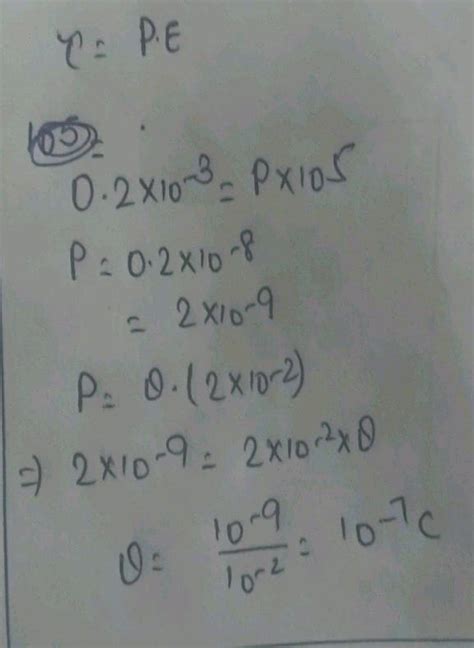 τ = P.E
105 =
0.2×10⁻³ = P×10⁵
P = 0.2×10⁻⁸
= 2×10⁻⁹
P = Q.(2×10⁻²)
⇒) 2×10⁻⁹ = 2×10⁻²×Q
Q = 10⁻⁹/10⁻² = 10⁻⁷C